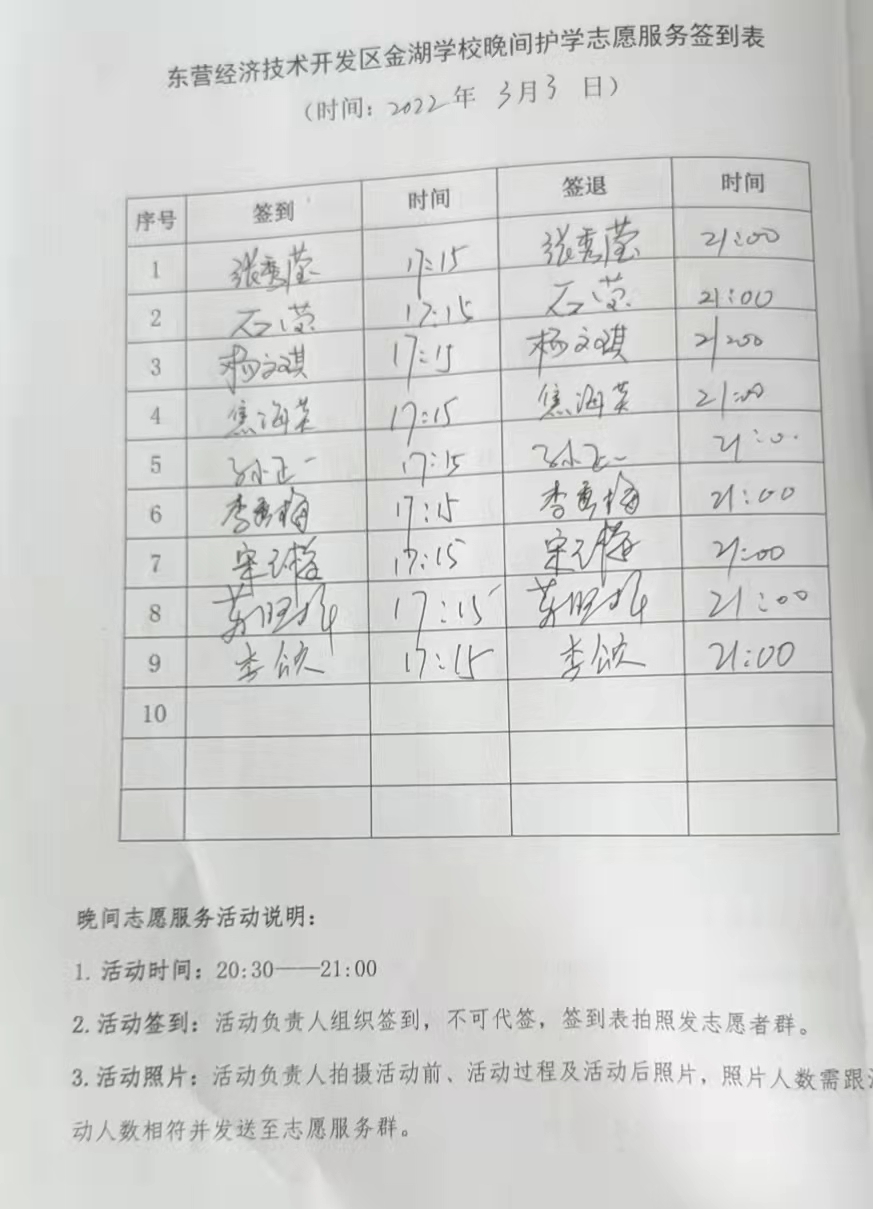 东营经济技术开发区金湖学校晚间护学志愿服务签到表
（时间：2022年 3月3 日）
序号 签到 时间 签退 时间
1 张秀莹 17:15 张秀莹 21:00
2 石莹 17:15 石莹 21:00
3 杨文琪 17:15 杨文琪 21:00
4 焦海英 17:15 焦海英 21:00
5 孙正一 17:15 孙正一 21:0
6 李秀梅 17:15 李秀梅 21:00
7 宋 17:15 宋 21:00
8 17:15 21:00
9 李 17:15 李 21:00
10
晚间志愿服务活动说明：
1. 活动时间：20:30——21:00
2. 活动签到：活动负责人组织签到，不可代签，签到表拍照发志愿者群。
3. 活动照片：活动负责人拍摄活动前、活动过程及活动后照片，照片人数需跟
动人数相符并发送至志愿服务群。